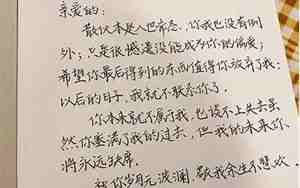 亲爱的:
散伙本是人世常态，你我也没有例
外；只是很遗憾没能成为你的偏爱;
希望你最后得到的东西值得你放弃了我;
以后的日子，我就不联系你了。
你本来就不属于我，也谈不上失去虽
然你塞满了我的过去，但我的未来你
将永远缺席。
祝你岁月无波澜，敬我余生不悲欢